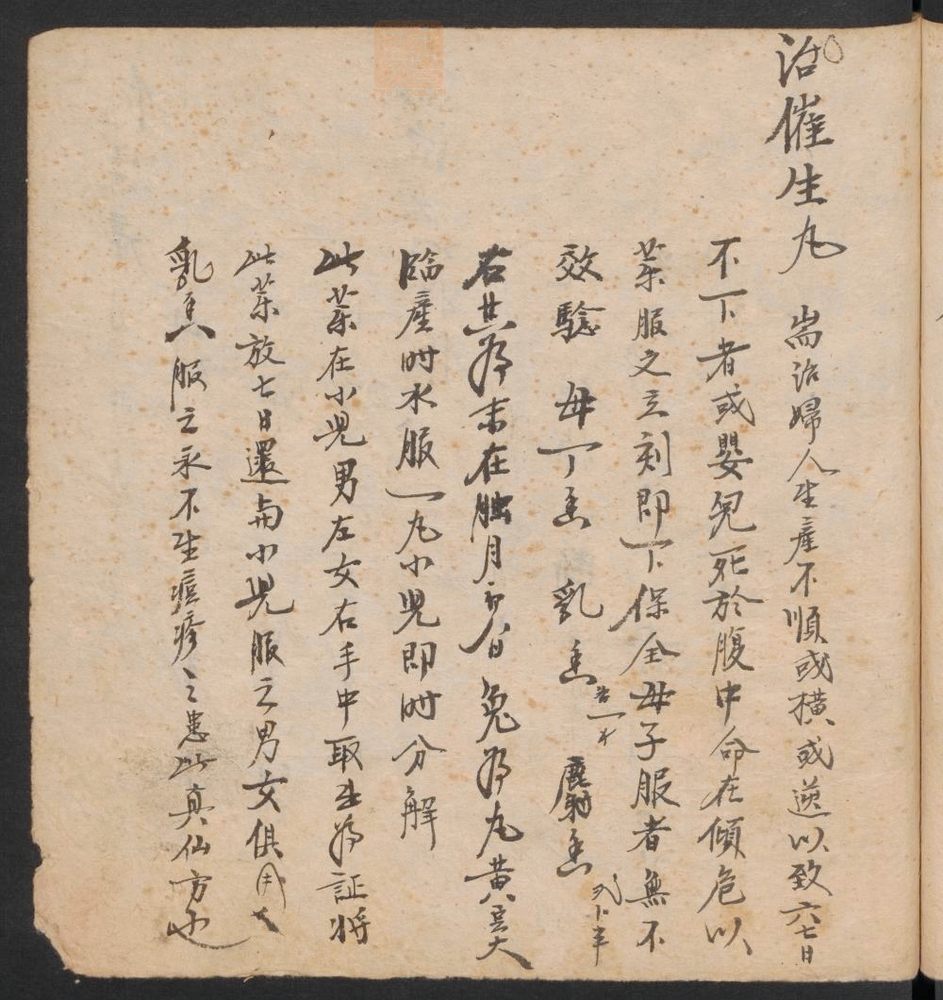 治催生丸 耑治婦人生產不順或橫或逆以致六七日
不下者或嬰児死於腹中命在傾危以
薬服之立刻即下保全母子服者無不
效驗 母丁香 乳香 各一才 麝香
右共為末在臘月 日兔為丸黃豆大
臨產时水服一丸小児即时分解
此薬在小児男左女右手中取出為証将
此薬放七日還与小児服之男女俱用
乳 服之永不生痘疹之患此真仙方也